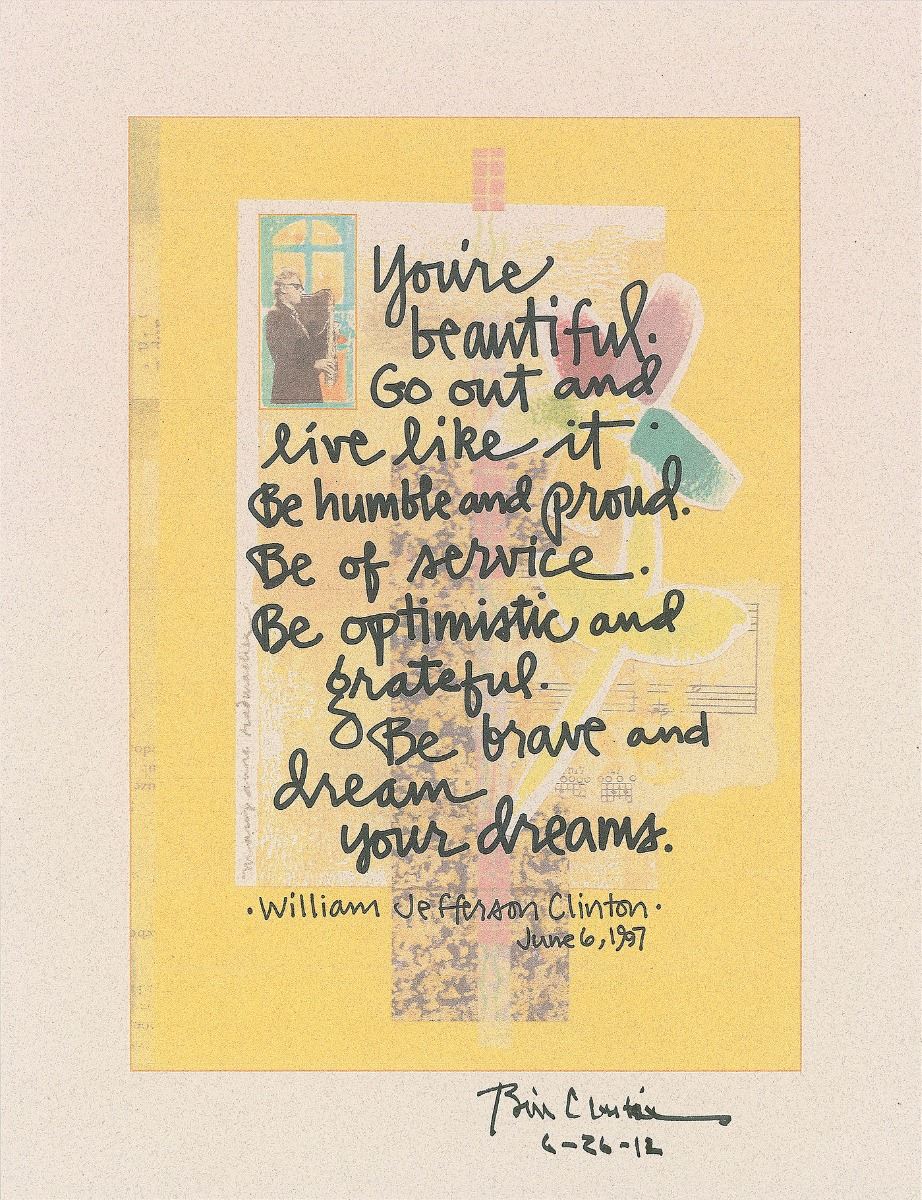 You're
beautiful.
Go out and
live like it.
Be humble and proud.
Be of service.
Be optimistic and
grateful.
Be brave and
dream
your dreams.
• William Jefferson Clinton •
June 6, 1997
mary anne radmacher
Bill Clinton
6-26-12